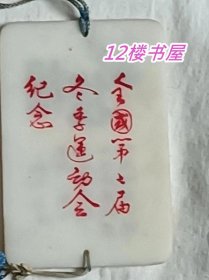 12楼书屋
全國第七届
冬季運动会
纪念